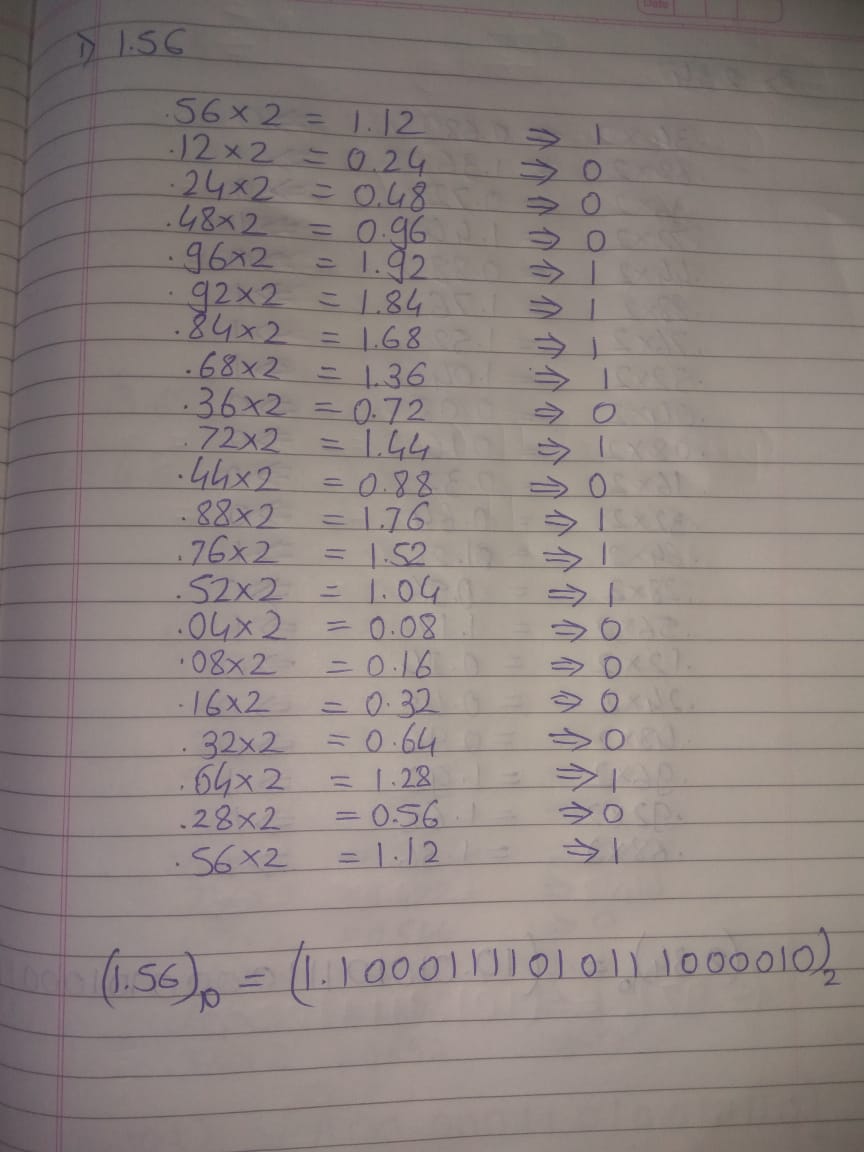 Date
1) 1.56
.56×2 = 1.12 ⇒ 1
.12×2 = 0.24 ⇒ 0
.24×2 = 0.48 ⇒ 0
.48×2 = 0.96 ⇒ 0
.96×2 = 1.92 ⇒ 1
.92×2 = 1.84 ⇒ 1
.84×2 = 1.68 ⇒ 1
.68×2 = 1.36 ⇒ 1
.36×2 = 0.72 ⇒ 0
.72×2 = 1.44 ⇒ 1
.44×2 = 0.88 ⇒ 0
.88×2 = 1.76 ⇒ 1
.76×2 = 1.52 ⇒ 1
.52×2 = 1.04 ⇒ 1
.04×2 = 0.08 ⇒ 0
.08×2 = 0.16 ⇒ 0
.16×2 = 0.32 ⇒ 0
.32×2 = 0.64 ⇒ 0
.64×2 = 1.28 ⇒ 1
.28×2 = 0.56 ⇒ 0
.56×2 = 1.12 ⇒ 1
(1.56)₁₀ = (1.10001111010111000010)₂